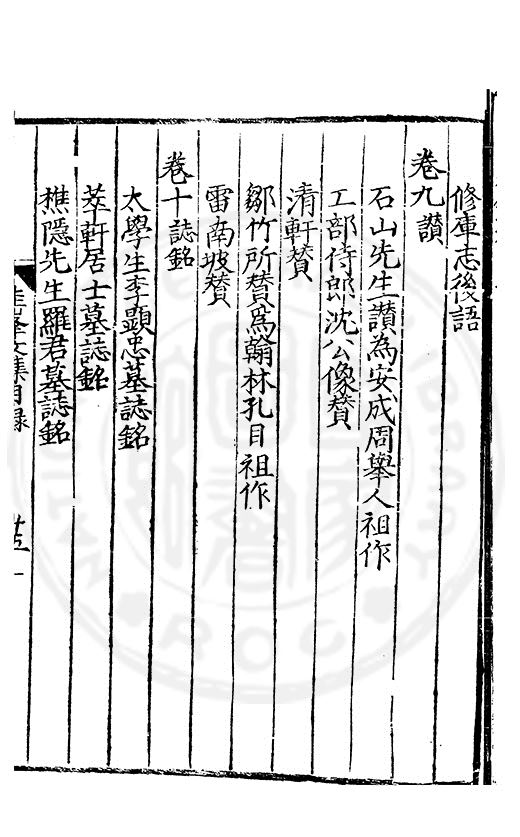 修庫志後語
卷九讃
石山先生讃為安成周舉人祖作
工部侍郎沈公像贊
清軒贊
鄒竹所贊爲翰林孔目祖作
雷南坡贊
卷十誌銘
太學生李顕忠墓誌銘
萃軒居士墓誌銘
樵隠先生羅君墓誌銘
峯文集目録